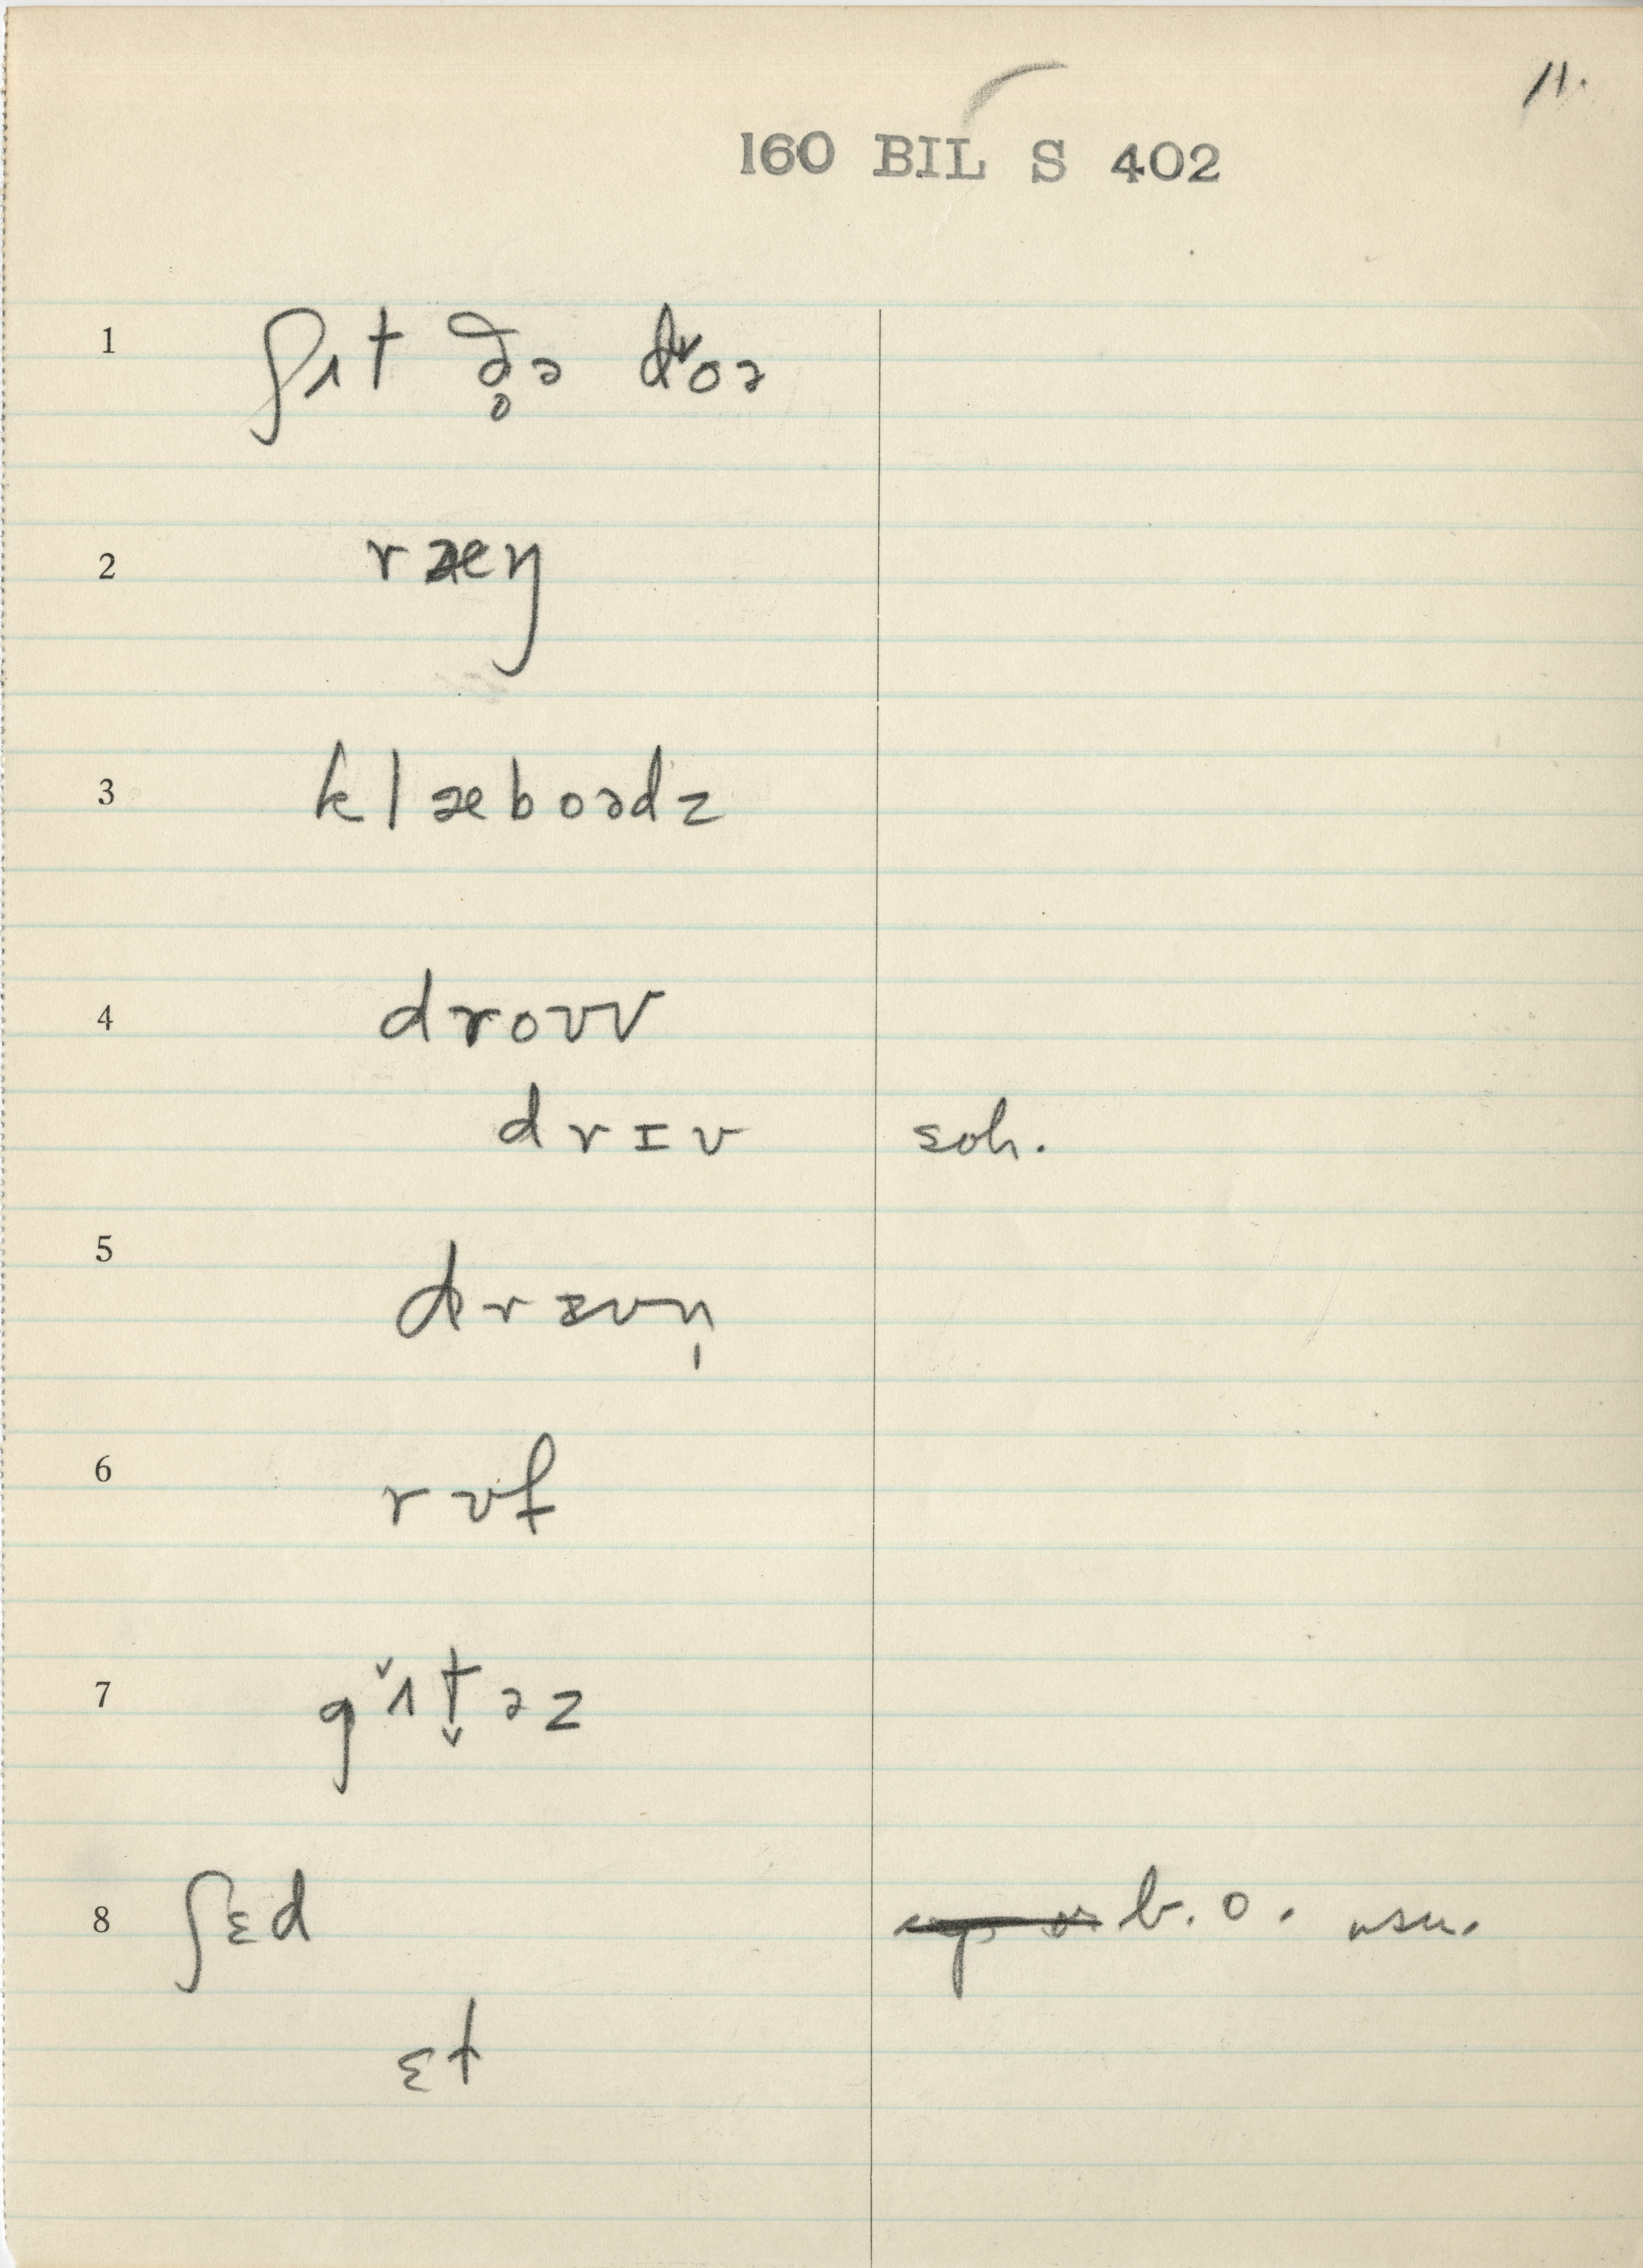 11.
160 BIL S 402
1 ʃɩt ð̥ə doə
2 ræŋ
3 klæboədz
4 droʊv
drɪv soh.
5 drɪvn̩
6 rʊf
7 gˇɩt̬əz
8 ʃɛd b. o. usu.
ɛt